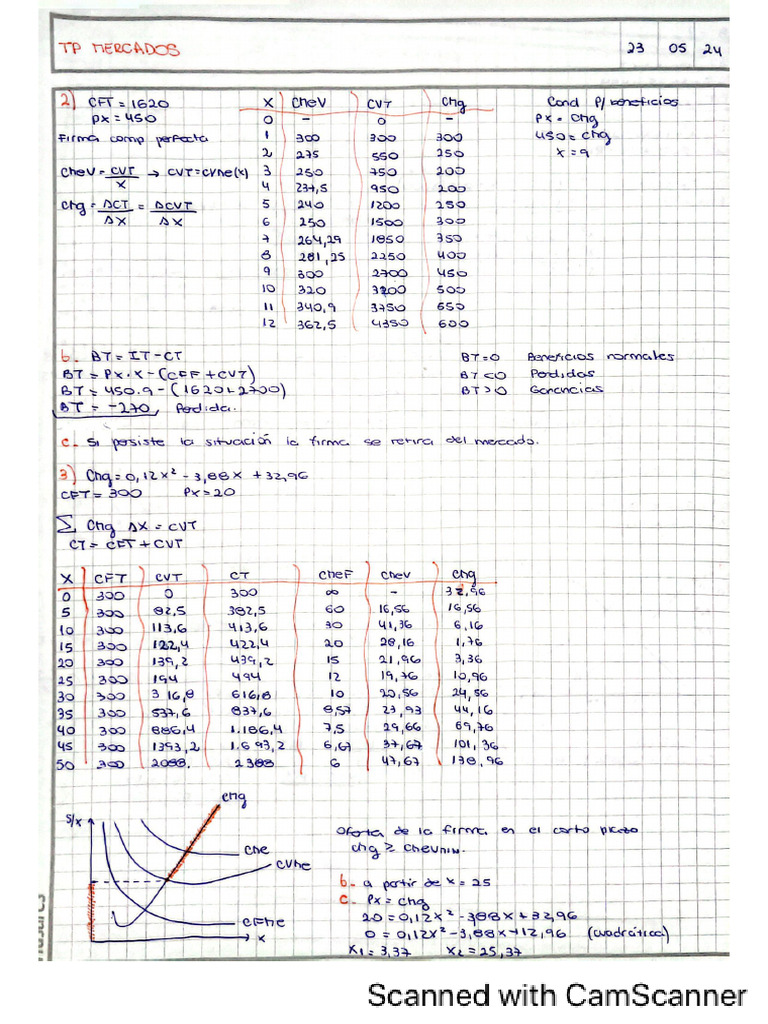 TP MERCADOS 23 05 24
2) CFT = 1620
Px = 450
Firma comp perfecta
CMeV = CVT / X → CVT = CVMe(x)
CMg = ΔCT / ΔX = ΔCVT / ΔX
X CMeV CVT CMg
0 - 0 -
1 300 300 300
2 275 550 250
3 250 750 200
4 237,5 950 200
5 240 1200 250
6 250 1500 300
7 264,29 1850 350
8 281,25 2250 400
9 300 2700 450
10 320 3200 500
11 340,9 3750 550
12 362,5 4350 600
Cond P/ beneficios
Px = CMg
450 = CMg
X = 9
b. BT = IT - CT
BT = Px.X - (CFF + CVT)
BT = 450.9 - (1620 + 2700)
BT = -270, Perdida.
BT = 0 Beneficios normales
BT < 0 Perdidas
BT > 0 Ganancias
c. Si persiste la situación la firma se retira del mercado.
3) CMg = 0,12x² - 3,88x + 32,96
CFT = 300 Px = 20
Σ CMg ΔX = CVT
CT = CFT + CVT
X CFT CVT CT CMeF CMeV CMg
0 300 0 300 ∞ - 32,96
5 300 82,5 382,5 60 16,56 16,56
10 300 113,6 413,6 30 41,36 6,16
15 300 122,4 422,4 20 28,16 1,76
20 300 139,2 439,2 15 21,96 3,36
25 300 194 494 12 19,76 10,96
30 300 316,8 616,8 10 20,56 24,56
35 300 537,6 837,6 8,57 23,93 44,16
40 300 886,4 1.186,4 7,5 29,66 69,76
45 300 1393,2 1.693,2 6,67 37,67 101,36
50 300 2088. 2388 6 47,67 138,96
$/x
CMg
CMe
CVMe
CFMe
x
Oferta de la firma en el corto plazo
CMg ≥ CMeVMIN.
b. a partir de x = 25
c. Px = CMg
20 = 0,12x² - 388x + 32,96
0 = 0,12x² - 3,88x + 12,96 (cuadrática)
X1 = 3,37 X2 = 25,37
Scanned with CamScanner